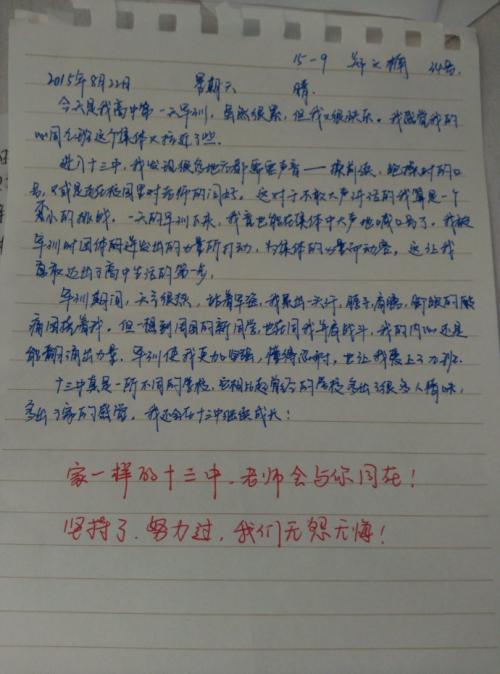 15-9 郑文楠 24号
2015年8月22日 星期六 晴
今天是我高中第一天军训,虽然很累,但我又很快乐。我感觉我的
心同九班这个集体又接近了些。
进入十三中,我发现很多地方都需要声音——
号,又或是走在校园里对老师的问好。这对于不敢大声讲话的我算是一个
不小的挑战。一天的军训下来,我竟也能在集体中大声地喊口号了。我被
军训时团体的迸发出的力量所打动,为集体的力量而动容。这让我
勇敢迈出了高中生活的第一步。
军训期间,天气很热,站着军姿,我累出一头汗,脖子、肩膀、
痛困扰着我。但一想到周围的新同学,也在同我并肩战斗,我的内心还是
能翻涌出力量。军训使我更加坚强,懂得忍耐,也让我爱上了九班。
十三中真是一所不同的学校,它相比起曾经的学校多出了很多人情味,
多出了家的感觉。我还会在十三中继续成长!
家一样的十三中,老师会与你同在!
坚持了,努力过,我们无怨无悔!